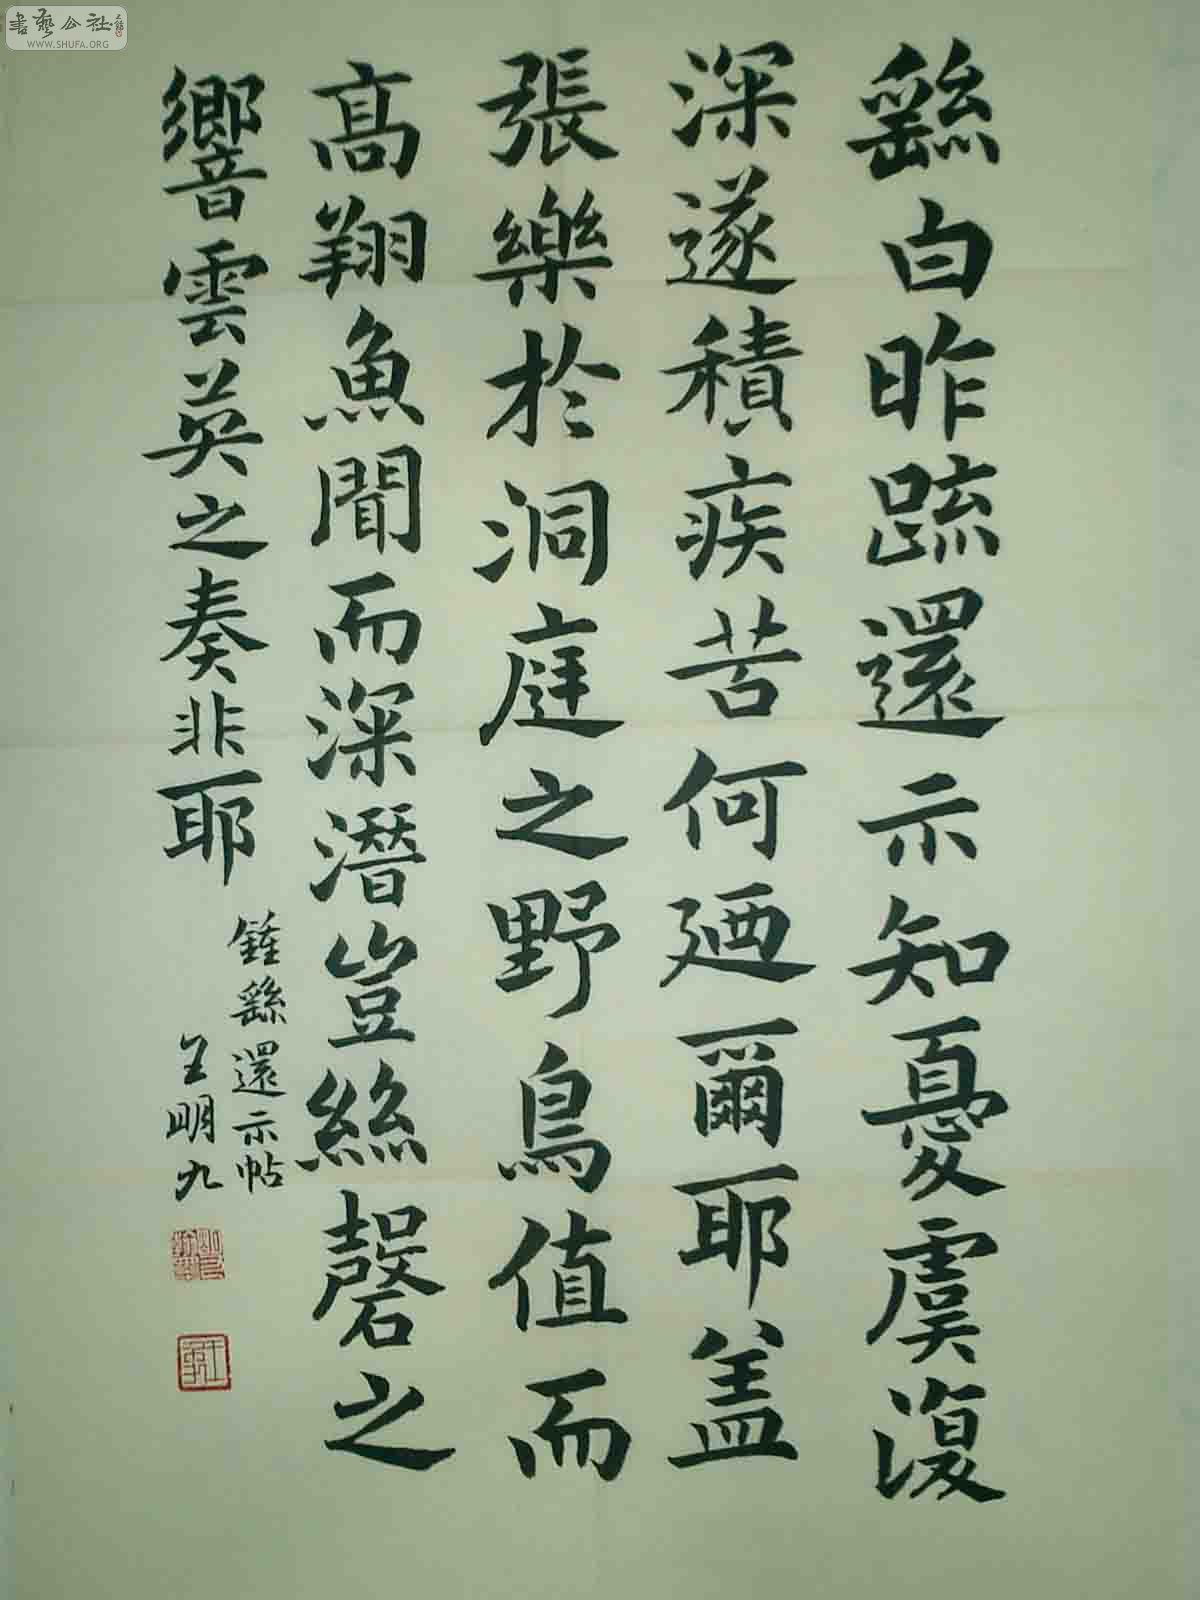 繇白昨疏還示知憂虞復
深遂積疾苦何廼爾耶盖
張樂於洞庭之野鳥值而
高翔魚聞而深潛豈絲磬之
響雲英之奏非耶
鍾繇還示帖
王明九
書藝公社
WWW.SHUFA.ORG